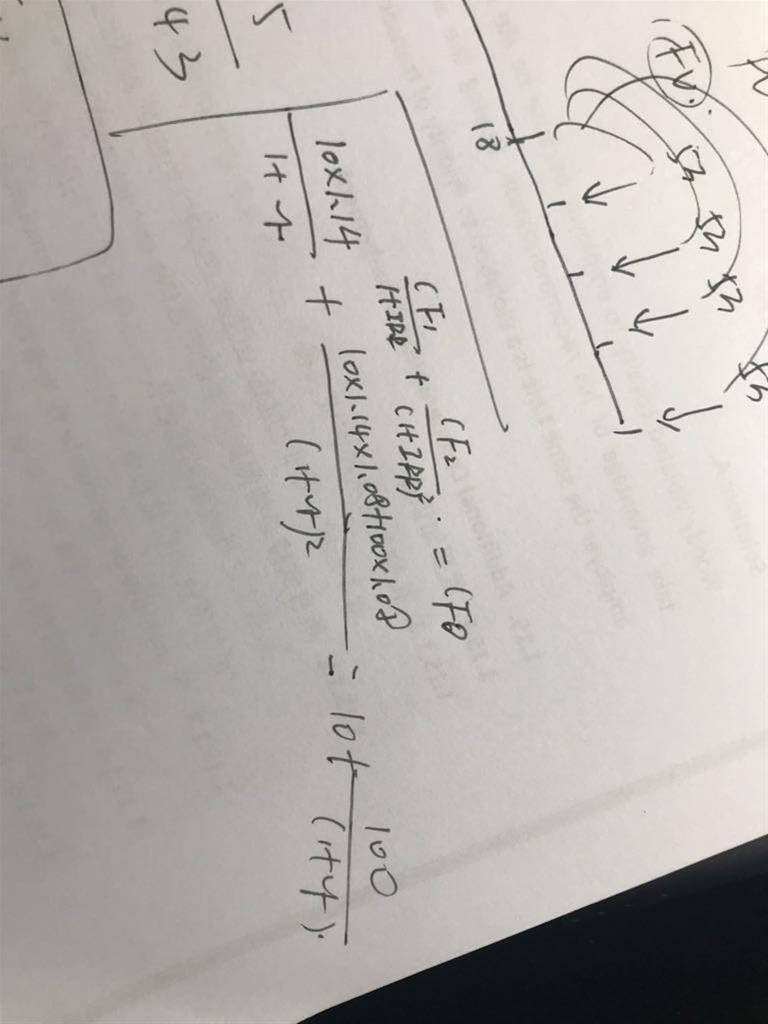 FV.
18
CF₁/1+IRR + CF₂/(1+IRR)² = CF0
10×1.14/1+y + 10×1.14×1.08+100×1.08/(1+y)² = 10+ 100/(1+y).
5
43